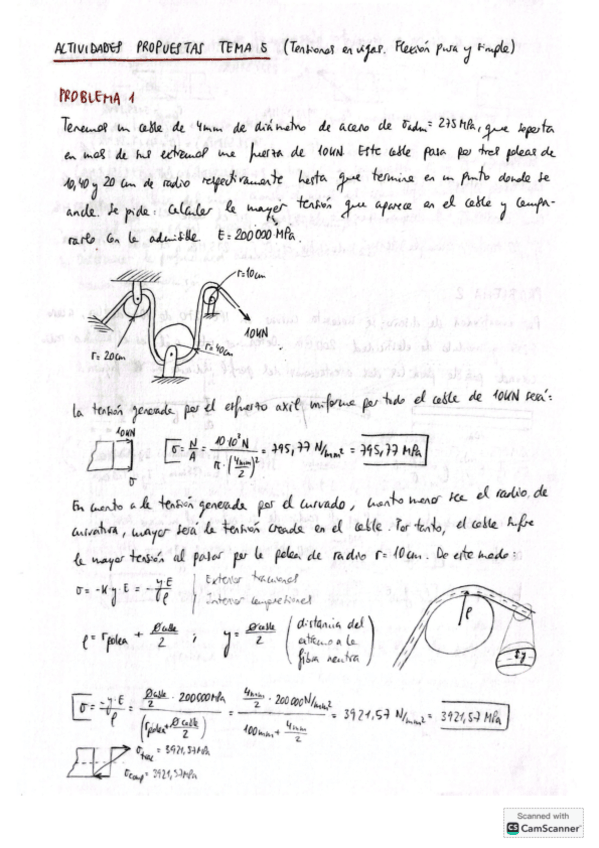 ACTIVIDADES PROPUESTAS TEMA 5 (Tensiones en vigas. Flexión pura y simple)
PROBLEMA 1
Tenemos un cable de 4mm de diámetro de acero de σadm = 275 MPa, que soporta
en mas de sus extremos una fuerza de 10KN Este cable pasa por tres poleas de
10, 40 y 20 cm de radio respectivamente hasta que termina en un punto donde se
ancla. Se pide: Calcular la mayor tensión que aparece en el cable y compa-
rarlo con la admisible. E = 200 000 MPa.
r=10cm
10KN
r=20cm
r=40cm
La tensión generada por el esfuerzo axil uniforme por todo el cable de 10KN será:
10KN
σ
σ = N/A = 10·10³N / π·(4mm/2)² = 795,77 N/mm² = 795,77 MPa
En cuanto a la tensión generada por el curvado, cuanto menor sea el radio de
curvatura, mayor será la tensión creada en el cable. Por tanto, el cable sufre
la mayor tensión al pasar por la polea de radio r=10cm. De este modo:
σ = -K·y·E = -y·E/ρ | Exterior traccional
Interior compresional
ρ = rpolea + Øcable/2 ; y = Øcable/2 (distancia del
extremo a la
fibra neutra)
ρ
σ = -y·E/ρ = Øcable/2 · 200000MPa / (rpolea + Øcable/2) = 4mm/2 · 200000N/mm² / 100mm + 4mm/2 = 3921,57 N/mm² = 3921,57 MPa
σtrac = 3921,57MPa
σcomp = 3921,57MPa
Scanned with
CS CamScanner